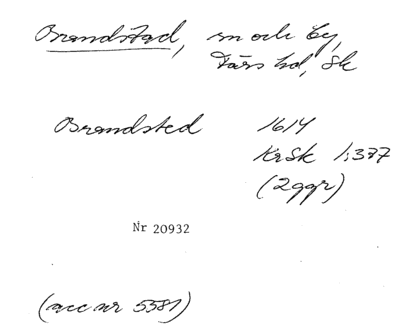 Brandstad, sn och by,
Färs hd, Sk
Brandsted 1614
KrSk 1:377
(2ggr)
Nr 20932
(acc nr 5581)